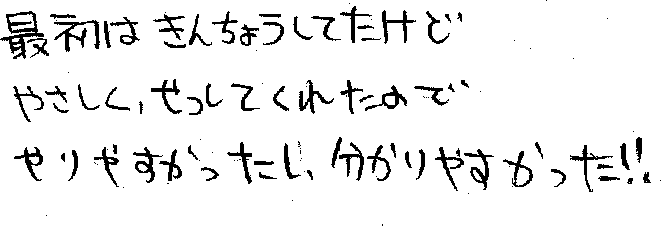 最初は きんちょうしてたけど
やさしく、せっしてくれたので
やりやすかったし、分かりやすかった!!.